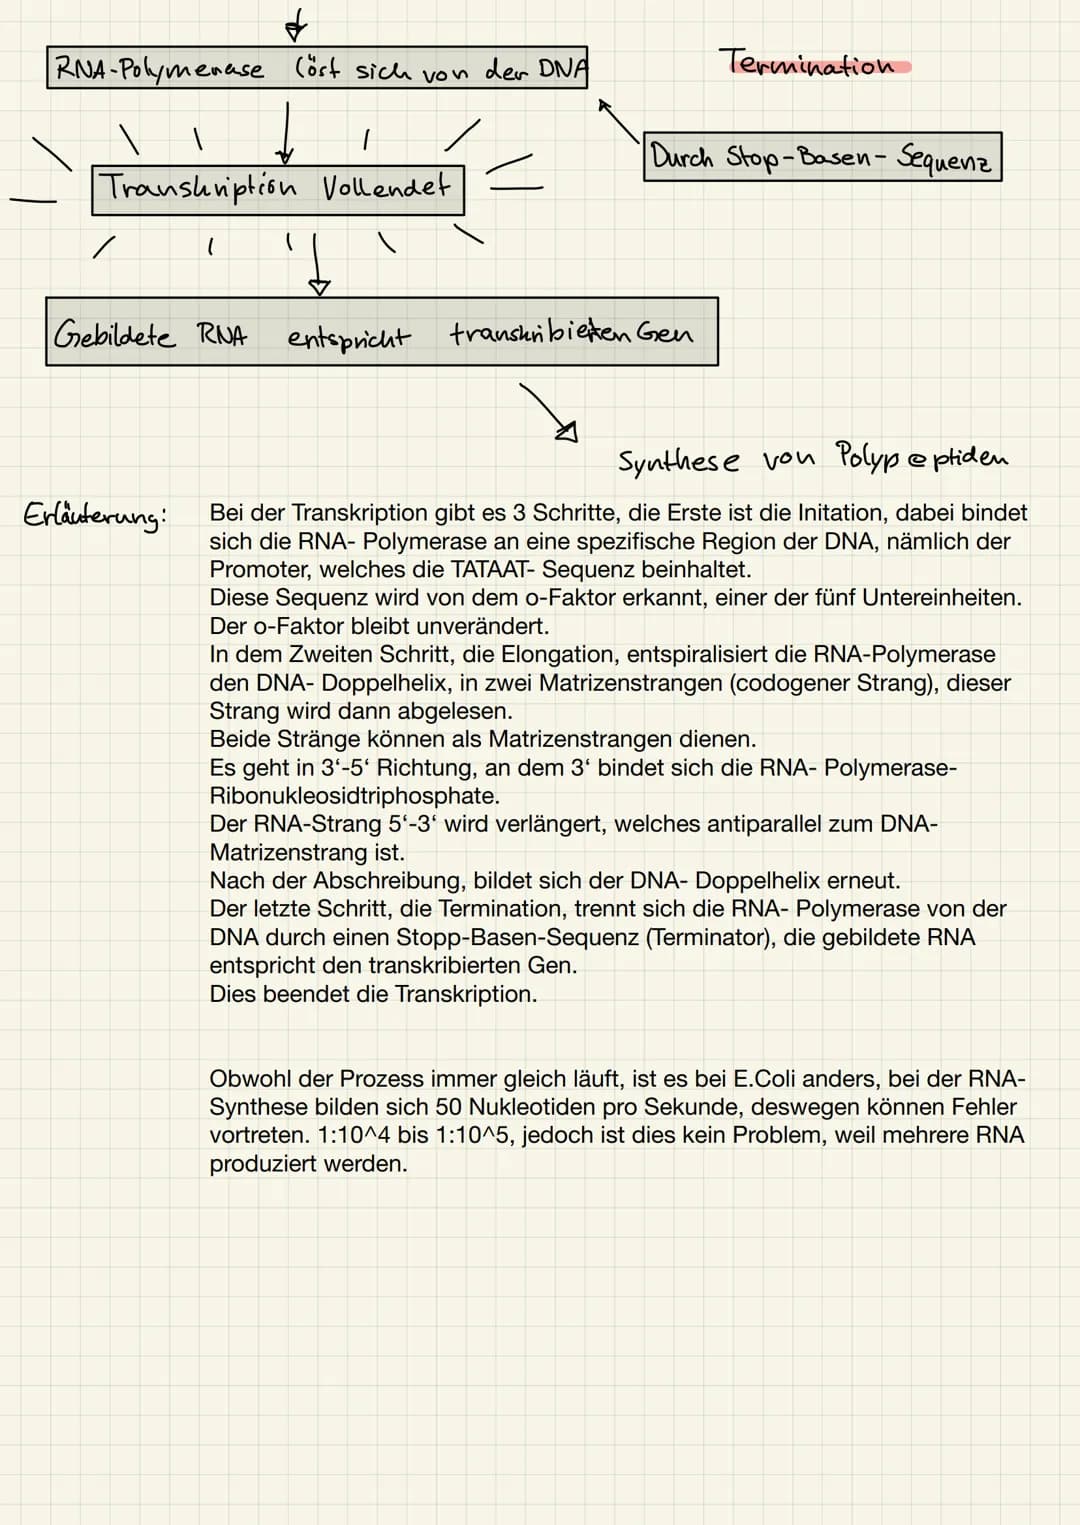 RNA-Polymerase löst sich von der DNA
Termination
Durch Stop-Basen-Sequenz
Transkription Vollendet
Gebildete RNA entspricht transkribierten Gen
Synthese von Polypeptiden
Erläuterung:
Bei der Transkription gibt es 3 Schritte, die Erste ist die Initation, dabei bindet
sich die RNA- Polymerase an eine spezifische Region der DNA, nämlich der
Promoter, welches die TATAAT- Sequenz beinhaltet.
Diese Sequenz wird von dem o-Faktor erkannt, einer der fünf Untereinheiten.
Der o-Faktor bleibt unverändert.
In dem Zweiten Schritt, die Elongation, entspiralisiert die RNA-Polymerase
den DNA- Doppelhelix, in zwei Matrizenstrangen (codogener Strang), dieser
Strang wird dann abgelesen.
Beide Stränge können als Matrizenstrangen dienen.
Es geht in 3‘-5‘ Richtung, an dem 3‘ bindet sich die RNA- Polymerase-
Ribonukleosidtriphosphate.
Der RNA-Strang 5‘-3‘ wird verlängert, welches antiparallel zum DNA-
Matrizenstrang ist.
Nach der Abschreibung, bildet sich der DNA- Doppelhelix erneut.
Der letzte Schritt, die Termination, trennt sich die RNA- Polymerase von der
DNA durch einen Stopp-Basen-Sequenz (Terminator), die gebildete RNA
entspricht den transkribierten Gen.
Dies beendet die Transkription.
Obwohl der Prozess immer gleich läuft, ist es bei E.Coli anders, bei der RNA-
Synthese bilden sich 50 Nukleotiden pro Sekunde, deswegen können Fehler
vortreten. 1:10^4 bis 1:10^5, jedoch ist dies kein Problem, weil mehrere RNA
produziert werden.